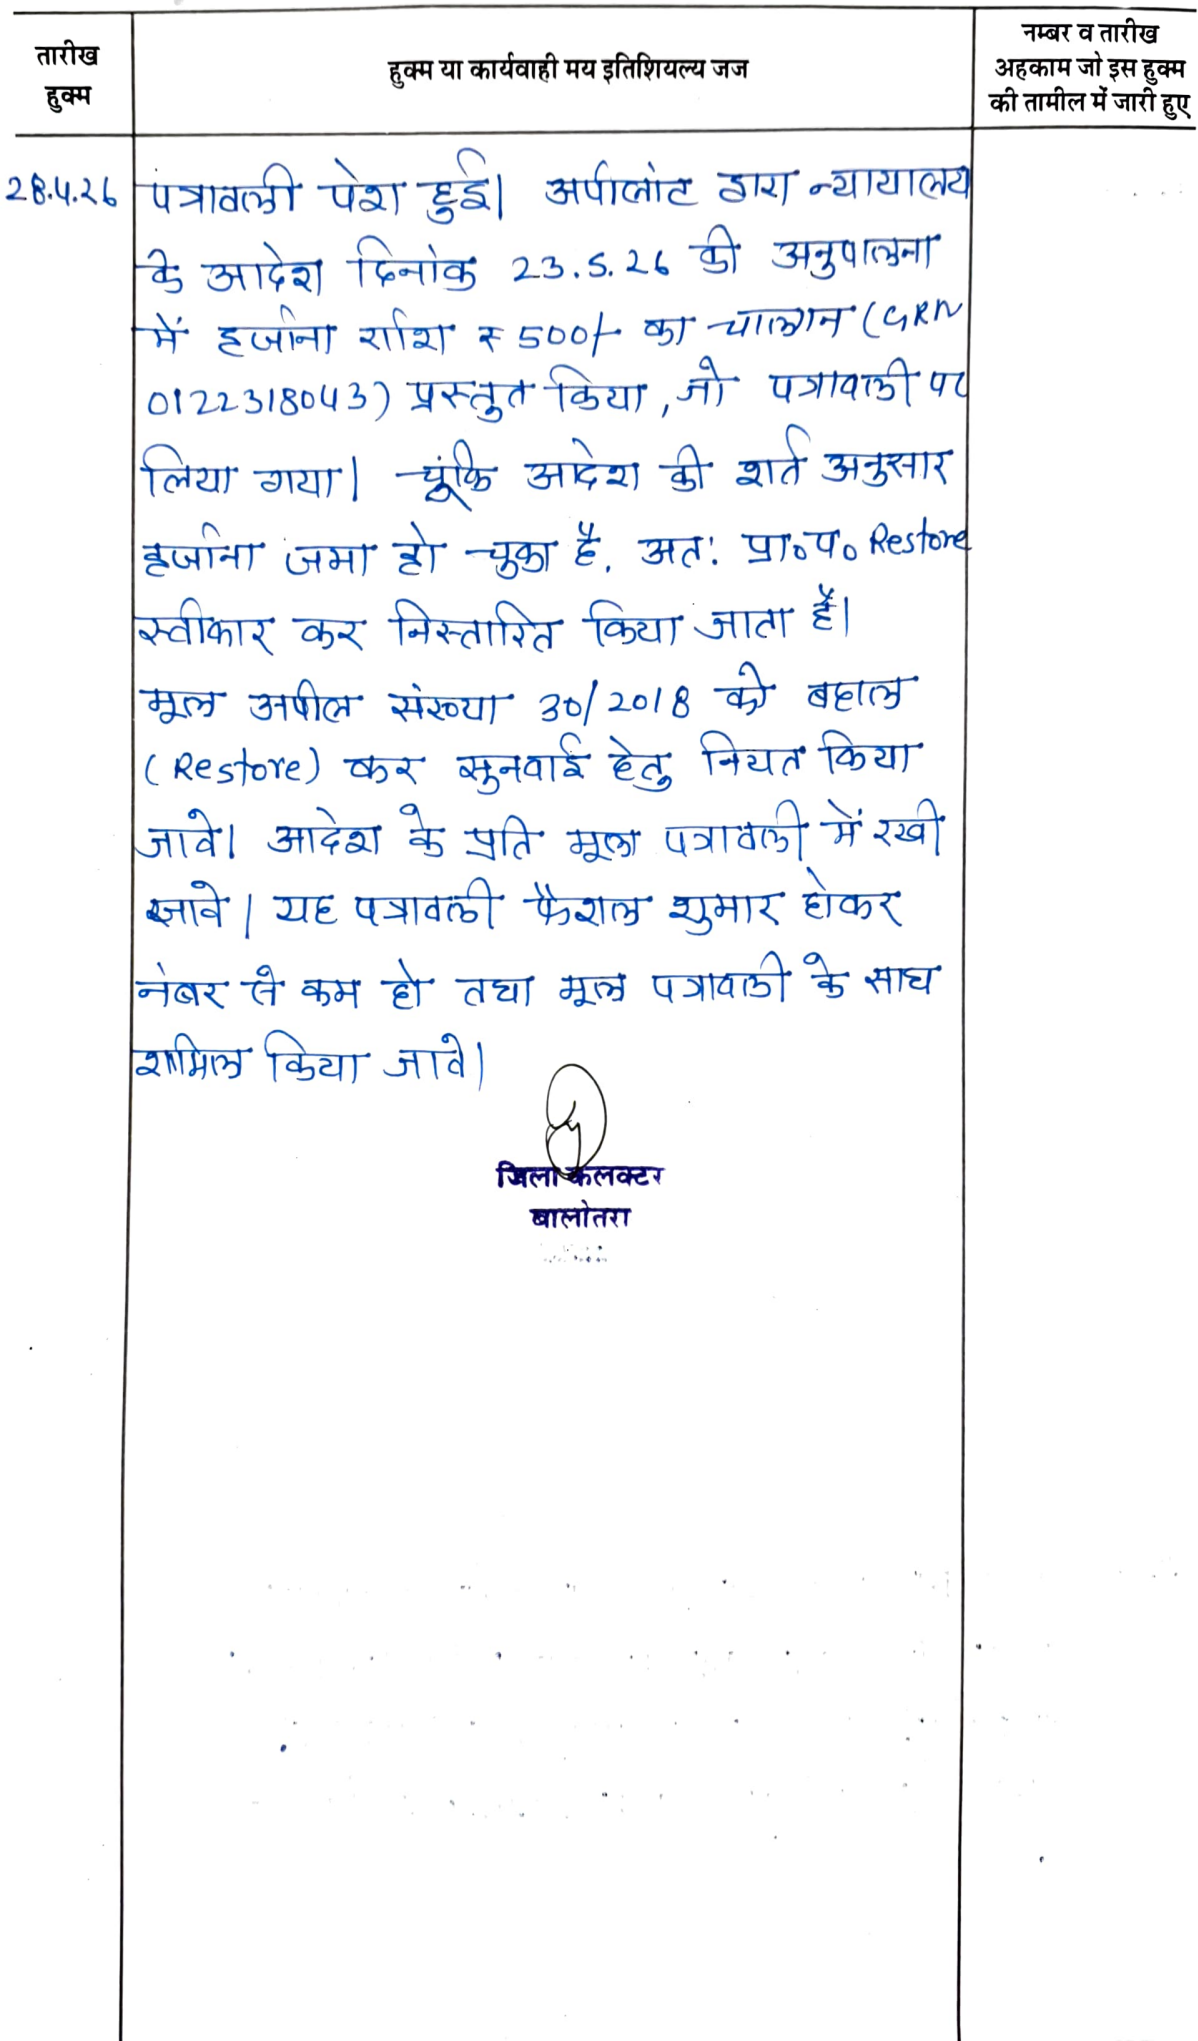 तारीख
हुक्म
हुक्म या कार्यवाही मय इतिशियल्य जज
नम्बर व तारीख
अहकाम जो इस हुक्म
की तामील में जारी हुए
28.4.26 पत्रावली पेश हुई। अपीलांट द्वारा न्यायालय
के आदेश दिनांक 23.5.26 की अनुपालना
में हर्जाना राशि ₹ 500/- का चालान (GRN
0122318043) प्रस्तुत किया, जो पत्रावली पर
लिया गया। चूंकि आदेश की शर्त अनुसार
हर्जाना जमा हो चुका है, अतः प्रा०प० Restore
स्वीकार कर निस्तारित किया जाता है।
मूल अपील संख्या 30/2018 को बहाल
(Restore) कर सुनवाई हेतु नियत किया
जावे। आदेश के प्रति मूल पत्रावली में रखी
जावे। यह पत्रावली फैशल शुमार होकर
नंबर से कम हो तथा मूल पत्रावली के साथ
शामिल किया जावे।
जिला कलक्टर
बालोतरा